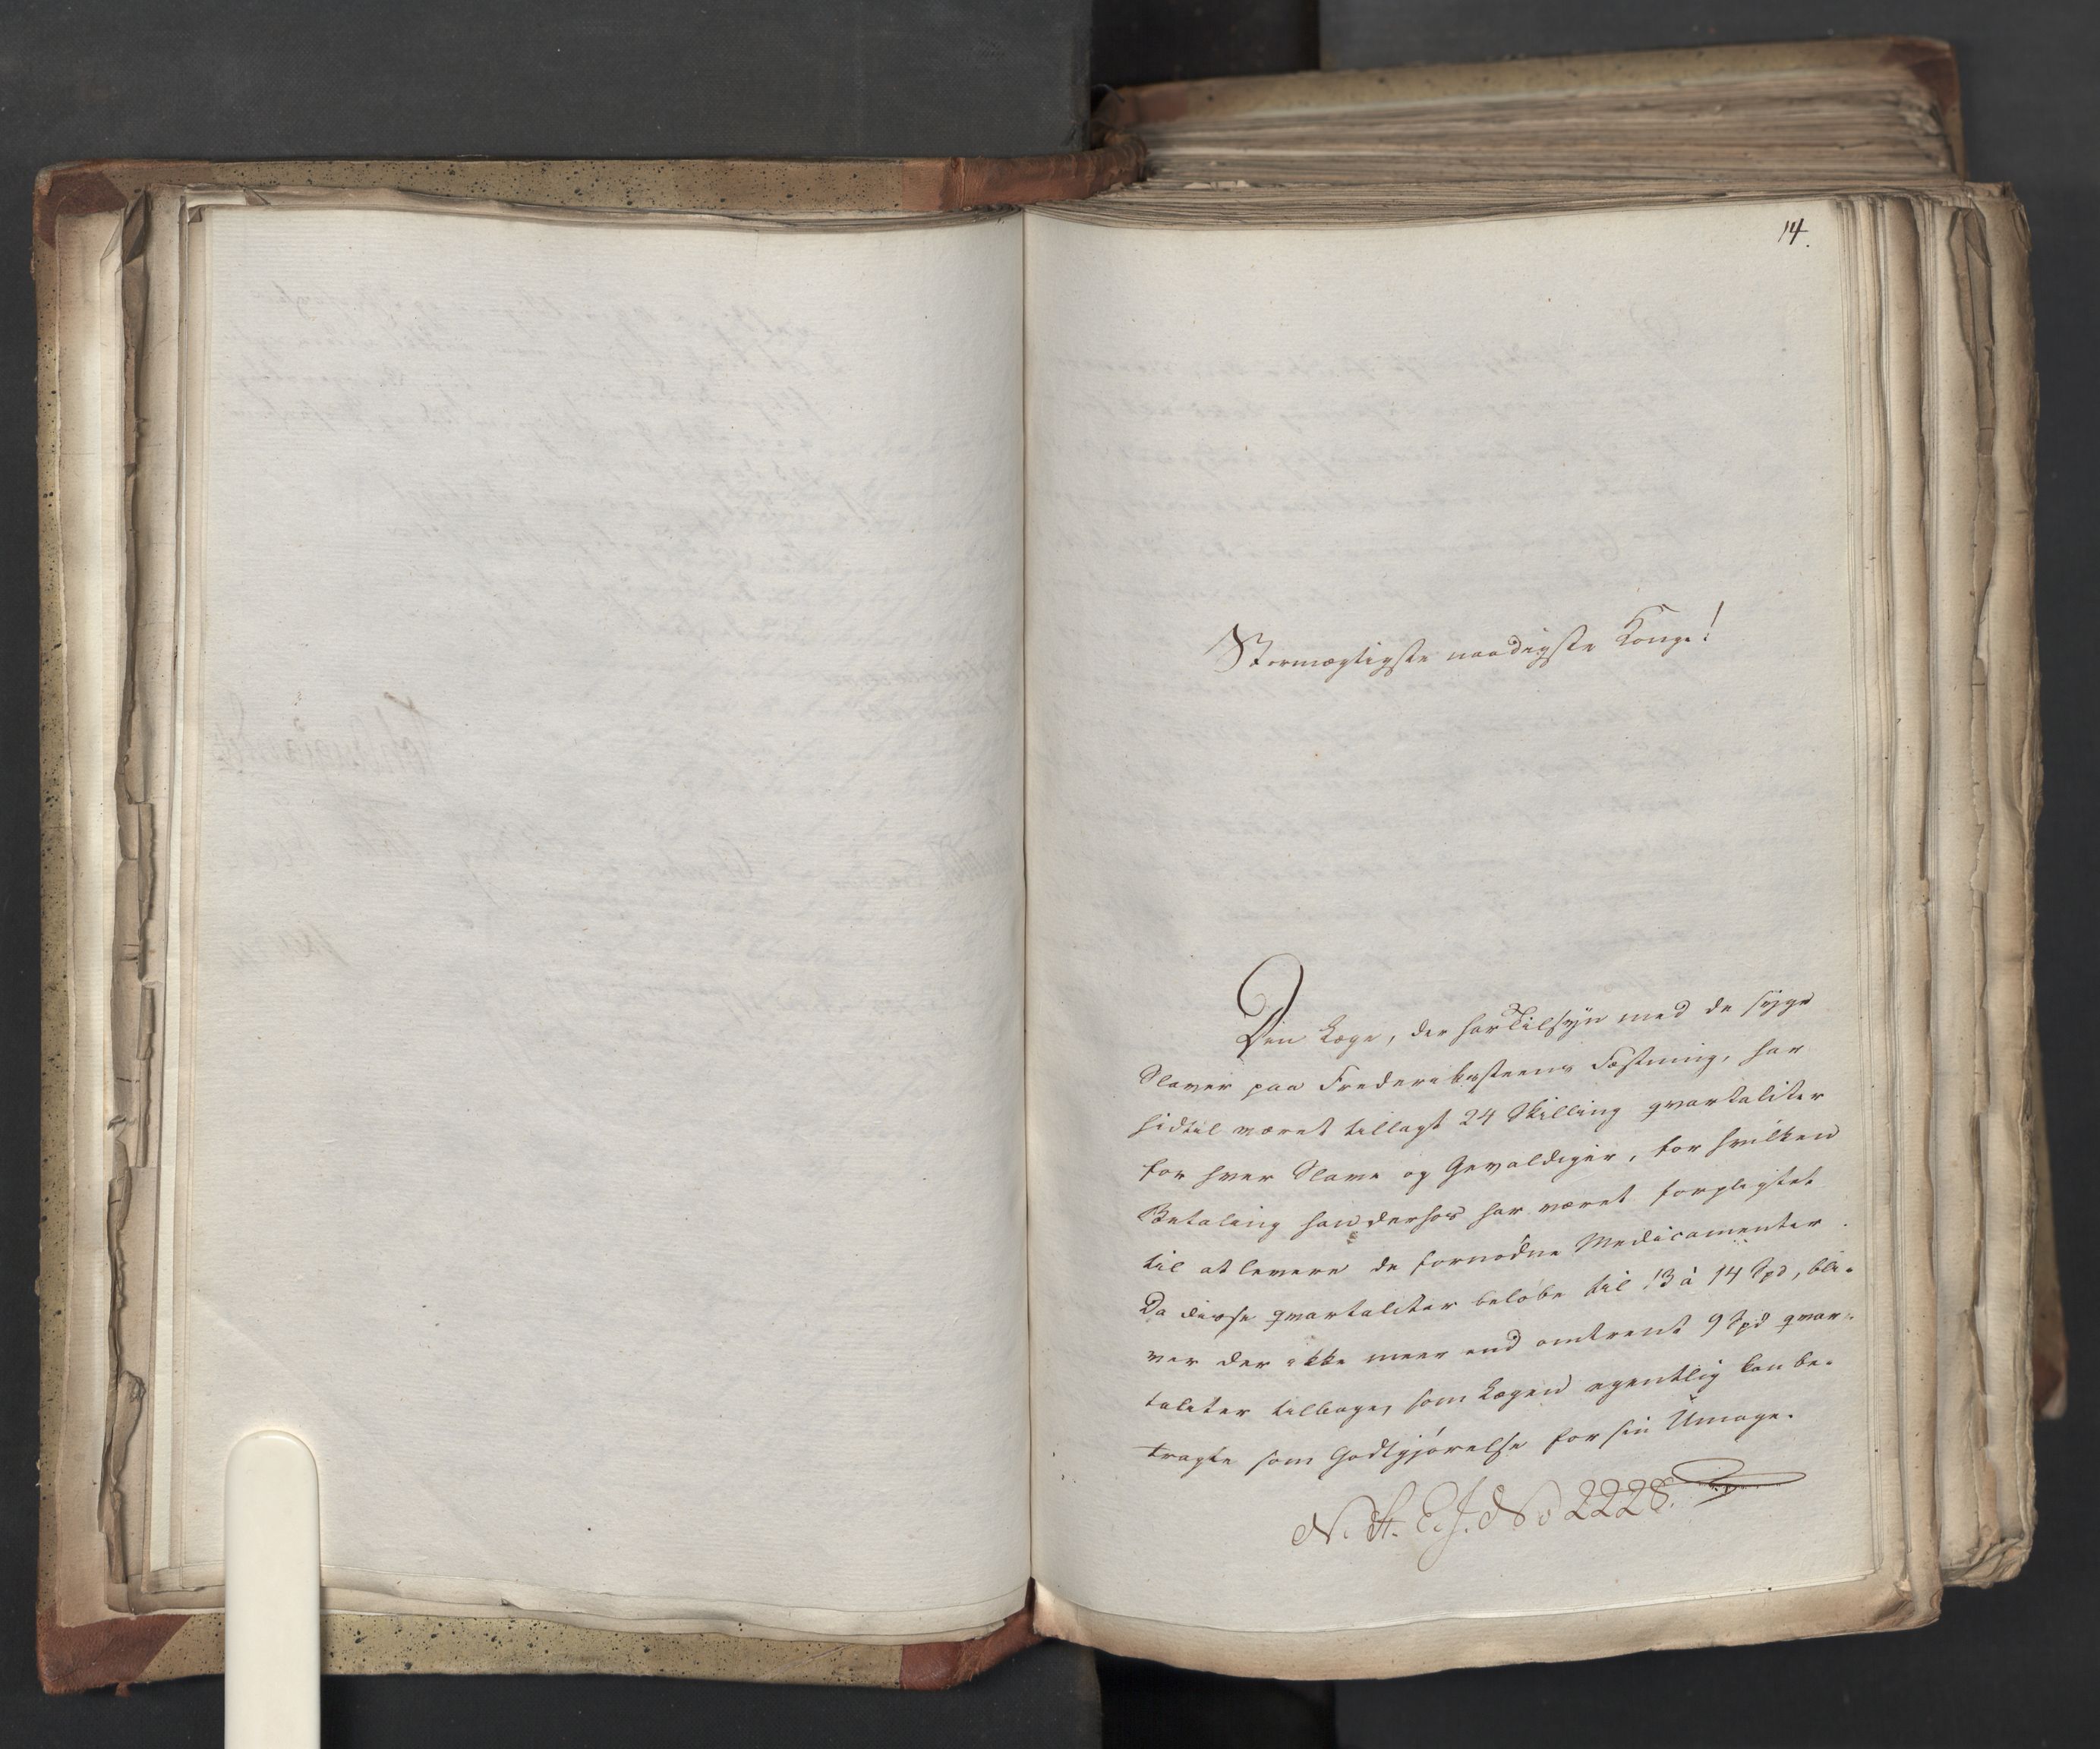 14.
Stormægtigste naadigste Konge!
Den Læge, der har Tilsyn med de syge
Slaver paa Frederikssteens Fæstning, har
hidtil været tillagt 24 Skilling qvartaliter
for hver Slave og Gevaldiger, for hvilken
Betaling han derhos har været forpligtet
til at levere de fornødne Medicamenter.
Da disse qvartaliter beløbe til 13 à 14 Spd, bli-
ver der ikke meer end omtrent 9 Spd qvar-
taliter tilbage, som Lægen egentlig kan be-
tragte som Godtgjørelse for sin Umage.
N. St. E. J. No 2228.